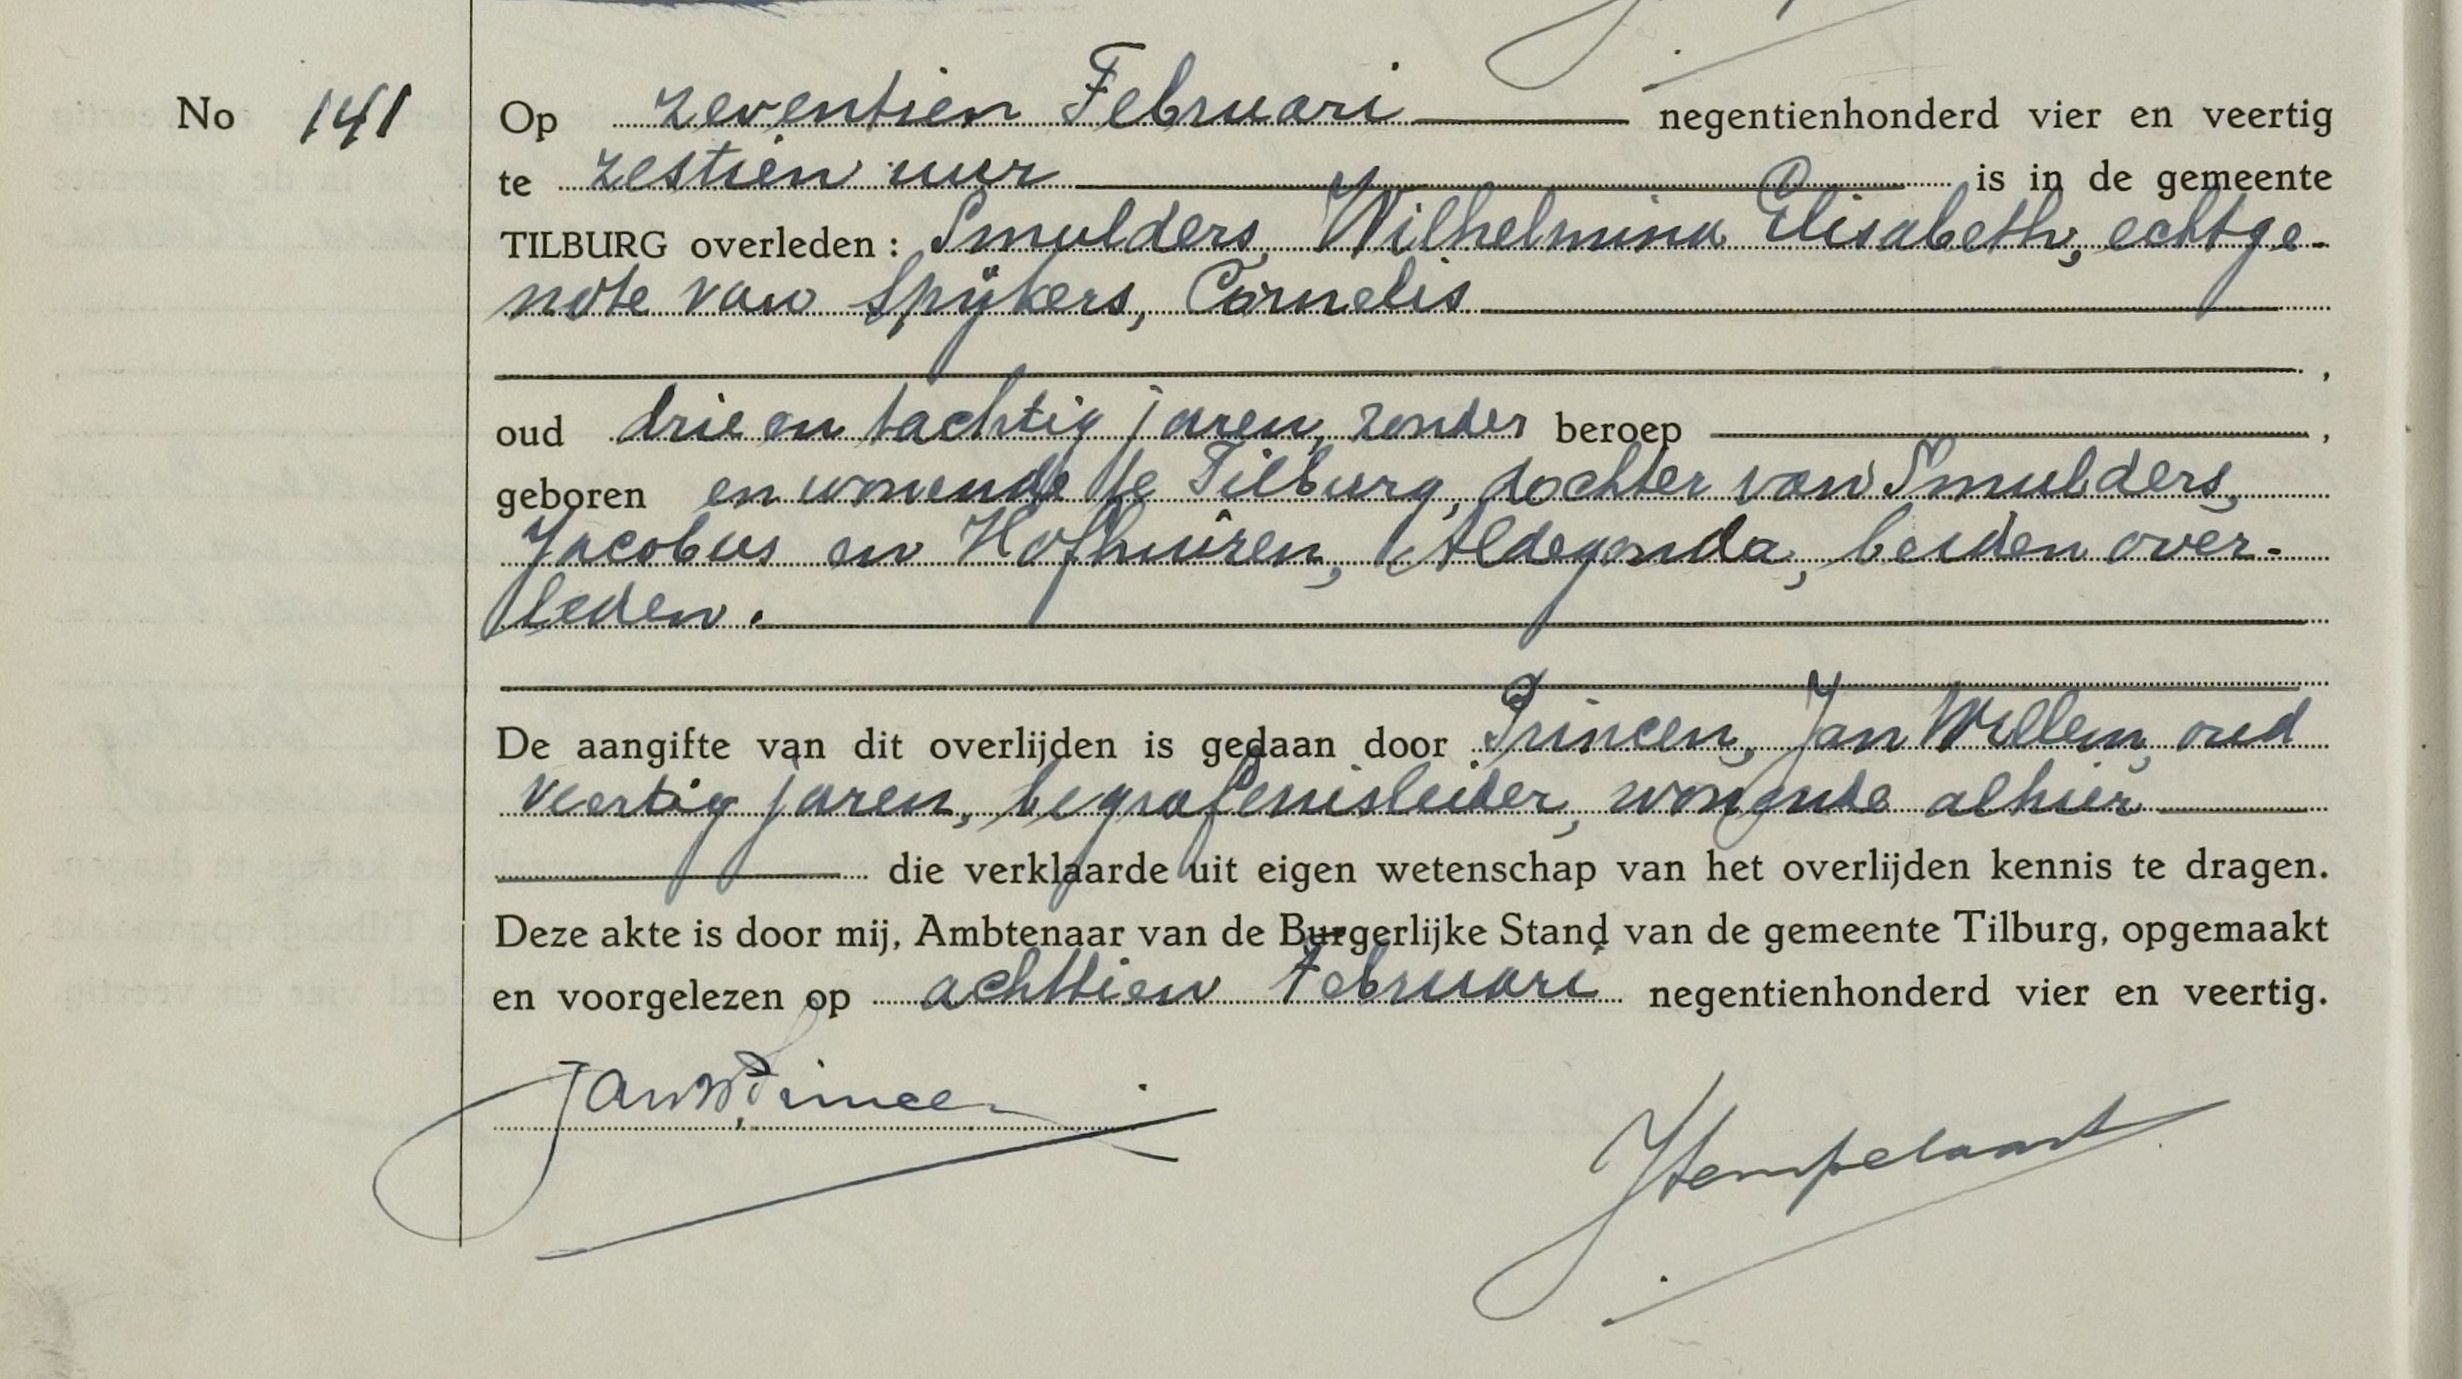 No 141
Op zeventien Februari negentienhonderd vier en veertig
te zestien uur is in de gemeente
TILBURG overleden: Smulders, Wilhelmina Elisabeth, echtge-
note van Spijkers, Cornelis
,
oud drie en tachtig jaren, zonder beroep ,
geboren en wonende te Tilburg, dochter van Smulders,
Jacobus en Hofhuiren, Aldegonda, beiden over-
leden.
De aangifte van dit overlijden is gedaan door Princen, Jan Willem, oud
veertig jaren, begrafenisleider, wonende alhier
die verklaarde uit eigen wetenschap van het overlijden kennis te dragen.
Deze akte is door mij, Ambtenaar van de Burgerlijke Stand van de gemeente Tilburg, opgemaakt
en voorgelezen op achttien Februari negentienhonderd vier en veertig.
JanWPrincen